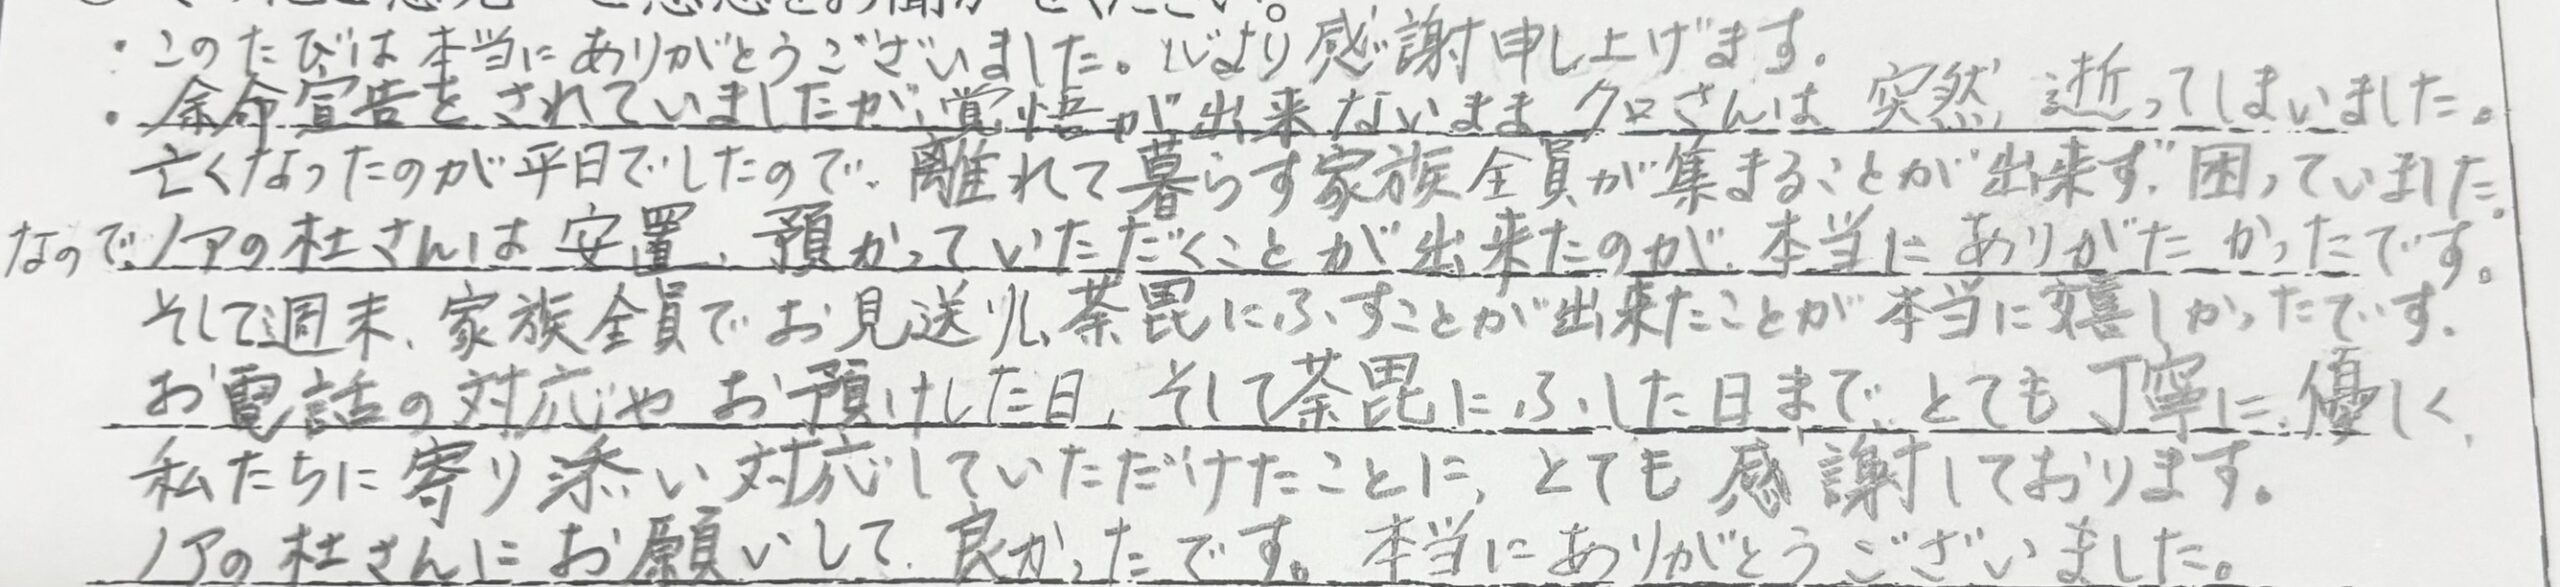 ご感想をお聞かせください。
・このたびは本当にありがとうございました。心より感謝申し上げます。
・余命宣告をされていましたが、覚悟が出来ないまま クロさんは 突然、逝ってしまいました。
亡くなったのが平日でしたので、離れて暮らす家族全員が集まることが出来ず、困っていました。
なので、ノアの杜さんは 安置、預かっていただくことが出来たのが、本当にありがたかったです。
そして週末、家族全員でお見送りし、荼毘にふすことが出来たことが本当に嬉しかったです。
お電話の対応やお預けした日、そして荼毘にふした日まで、とても丁寧に、優しく、
私たちに寄り添い対応していただけたことに、とても感謝しております。
ノアの杜さんにお願いして、良かったです。本当にありがとうございました。